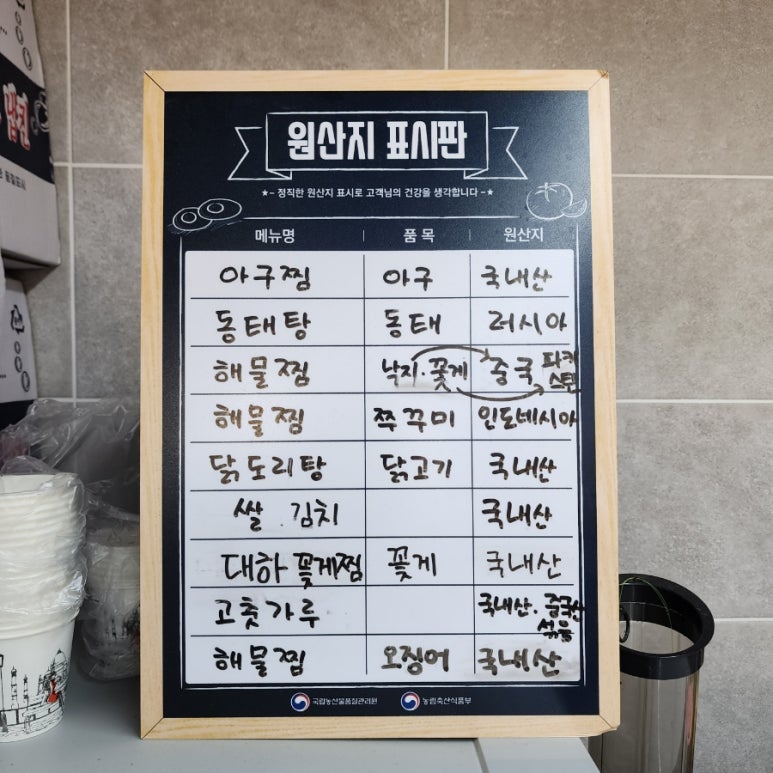 원산지 표시판
★- 정직한 원산지 표시로 고객님의 건강을 생각합니다 -★
메뉴명 품 목 원산지
아구찜 아구 국내산
동태탕 동태 러시아
해물찜 낙지·꽃게 중국 파키스탄
해물찜 쭈꾸미 인도네시아
닭도리탕 닭고기 국내산
쌀. 김치 국내산
대하 꽃게찜 꽃게 국내산
고춧가루 국내산. 중국산 섞음
해물찜 오징어 국내산
국립농산물품질관리원 농림축산식품부